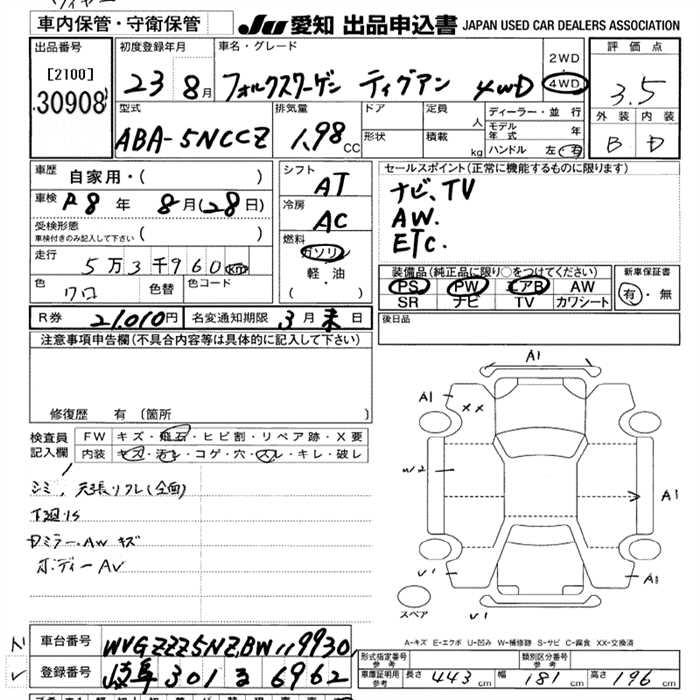 車内保管・守衛保管 JU 愛知 出品申込書 JAPAN USED CAR DEALERS ASSOCIATION
出品番号
[2100]
30908
初度登録年月
23 8月
車名・グレード
フォルクスワーゲン ティグアン 4WD
2WD
4WD
評価点
3.5
外装 内装
B D
型式
ABA-5NCCZ
排気量
1.98 CC
ドア
形状
定員 人
積載 kg
ディーラー・並行
モデル年式 年
ハンドル 左・右
車歴
自家用・( )
車検
R8年 8月(28日)
受検形態
車検付きのみ記入して下さい ( )
走行
5万3千960km
色
クロ
色替
色コード
シフト
AT
冷房
AC
燃料
ガソリン
軽・油
( )
セールスポイント(正常に機能するものに限ります)
ナビ、TV
AW.
ETC.
装備品(純正品に限り○をつけてください)
PS PW エアB AW
SR ナビ TV カワシート
新車保証書
有・無
R券 21,010円 名変通知期限 3月末日
後日品
注意事項申告欄(不具合内容等は具体的に記入して下さい)
修復歴 有 〔箇所 〕
検査員記入欄
FW キズ・飛石・ヒビ割・リペア跡・X要
内装 キズ・汚レ・コゲ・穴・スレ・キレ・破レ
シミ、天張リフレ(全面)
下廻りS
Dミラー・AW キズ
ボディーAU
A1
A1
XX
W2
A1
U1
A1
スペア
U1
A-キズ E-エクボ U-凹み W-補修跡 S-サビ C-腐食 XX-交換済
車台番号 WVGZZZ5NZBW119930
登録番号 岐阜 301 る 6962
形式指定番号
参考
類別区分番号
参考
車庫証明用
参考
長さ 443cm 幅 181cm 高さ 196cm